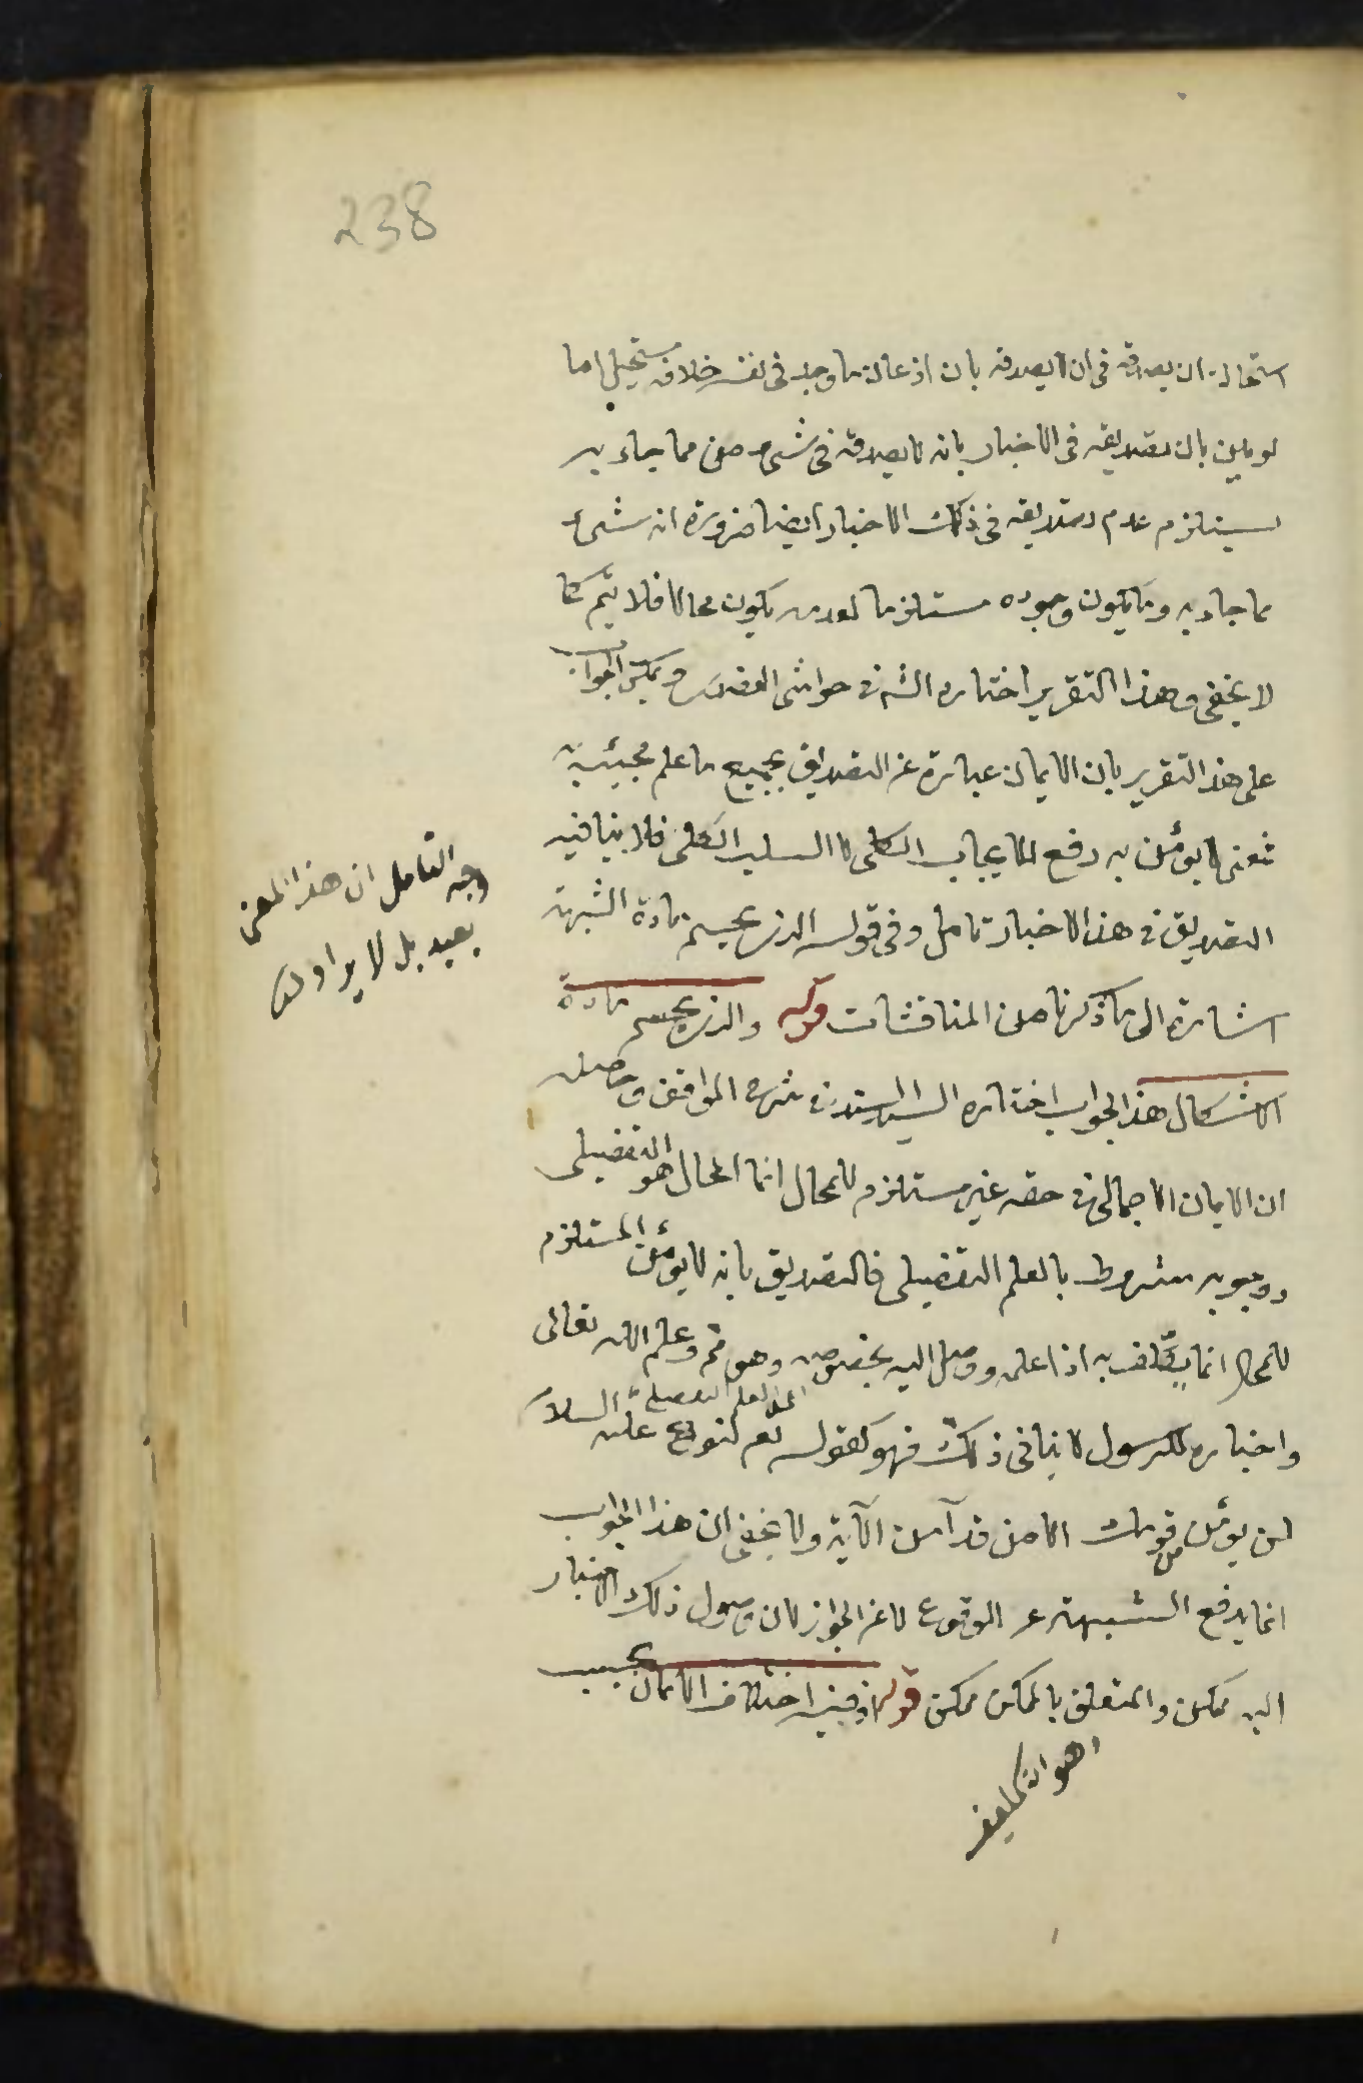 238
استحالة ان يصدقه فى ان لا يصدقه بان اذعان ما وجد فى نفسه خلافه مستحيل اما
لو بين بان تصديقه فى الاخبار بانه لا يصدقه فى شىء من مما جاء به
يستلزم عدم تصديقه فى ذلك الاخبار ايضا ضرورة انه شىء
مما جاء به وما يكون وجوده مستلزما لعدمه يكون محالا فلا يتم كما
لا يخفى وهذا التقرير اختاره الش فى حواشى العضد ويمكن الجواب
على هذا التقرير بان الايمان عبارة عن التصديق بجميع ما علم مجيئه به
فمعنى لا يؤمن به رفع الايجاب الكلى لا السلب الكلى فلا ينافيه
التصديق فى هذا الاخبار تامل وفى قوله الذى يحسم مادة الشبهة
اشارة الى ما ذكرنا من المناقشات قوله والذى يحسم مادة
الاشكال هذا الجواب اختاره السيد السند فى شرح المواقف وحاصله
ان الايمان الاجمالى فى حقه غير مستلزم للمحال انما المحال هو التفصيلى
ووجوبه مشروط بالعلم التفصيلى فالتصديق بانه لا يؤمن المستلزم
للمحال انما يكلف به اذا علمه ووصل اليه بخصوصه وهو مم وعلم الله تعالى
اى العلم التفصيلى
واخباره للرسول لا ينافى ذلك فهو كقوله تعم لنوح عليه السلام
لن يؤمن من قومك الا من قد آمن الآية ولا يخفى ان هذا الجواب
انما يدفع الشبهة عن الوقوع لا عن الجواز لان وصول ذلك الاخبار
اليه ممكن والمتعلق بالممكن ممكن قوله اذ فيه اختلاف الايمان بحسب
وجه التامل ان هذا المعنى
بعيد بل لا يراد